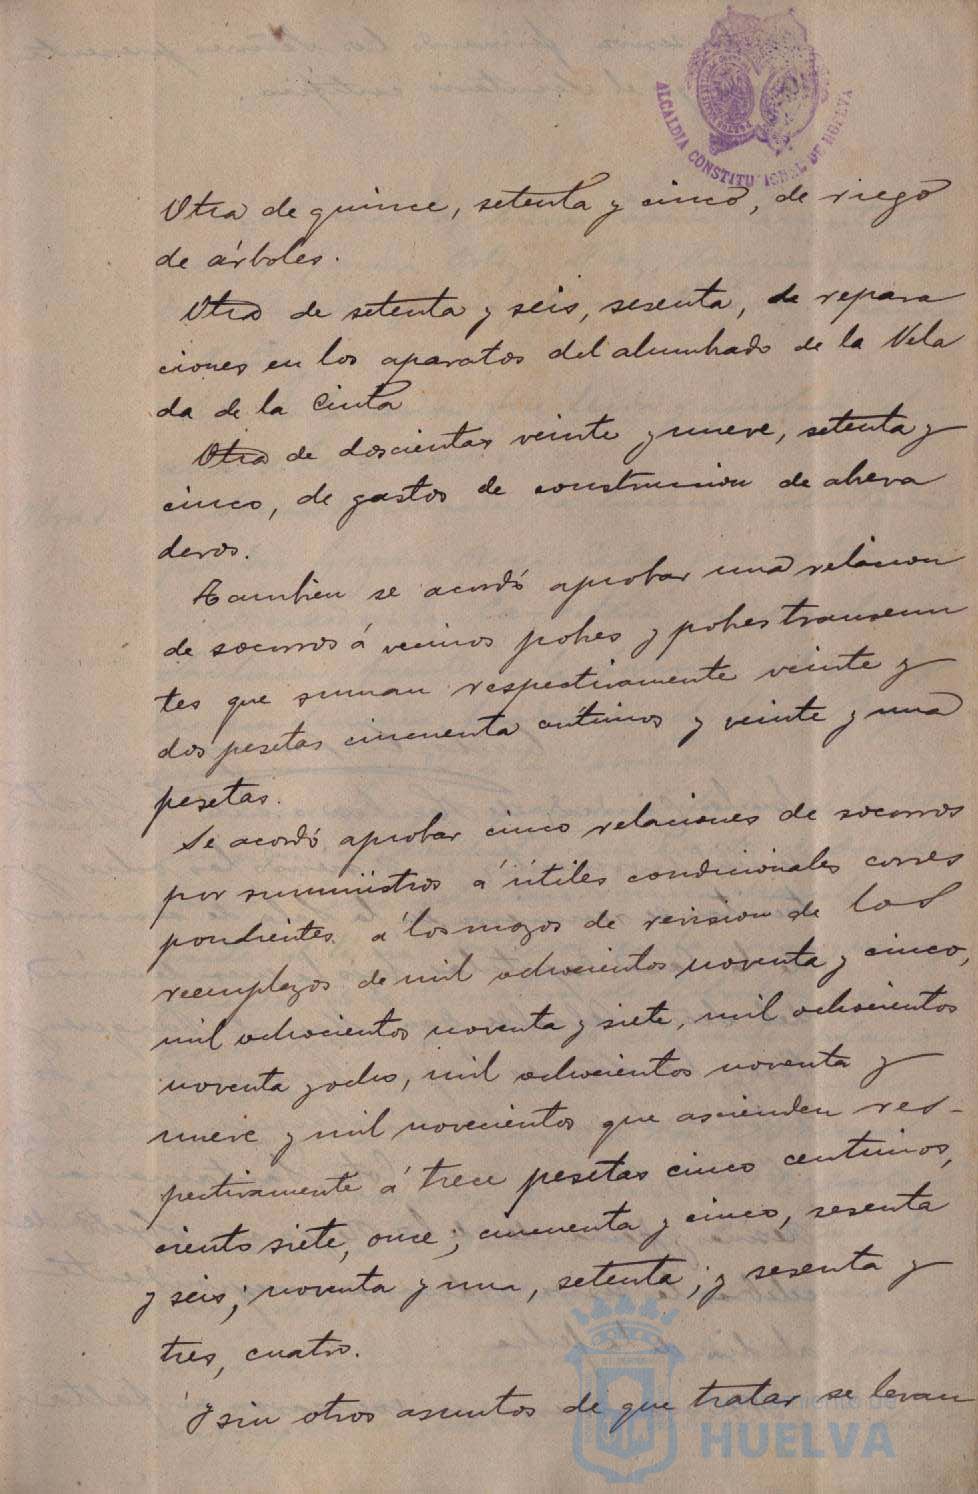 ALCALDIA CONSTITUCIONAL DE HUELVA
Otra de quince, setenta y cinco, de riego
de árboles.
Otra de setenta y seis, sesenta, de repara
ciones en los aparatos del alumbrado de la Vela
da de la Cinta
Otra de doscientas veinte y nueve, setenta y
cinco, de gastos de construccion de abreva
deros.
Tambien se acordó aprobar una relacion
de socorros á vecinos pobres y pobres transeun
tes que suman respectivamente veinte y
dos pesetas cincuenta céntimos y veinte y una
pesetas.
Se acordó aprobar cinco relaciones de socorros
por suministros á útiles condicionales corres
pondientes á los mozos de revision de los
reemplazos de mil ochocientos noventa y cinco,
mil ochocientos noventa y siete, mil ochocientos
noventa y ocho, mil ochocientos noventa y
nueve y mil novecientos que ascienden res-
pectivamente á trece pesetas cinco centimos,
ciento siete, once; cincuenta y cinco, sesenta
y seis; noventa y una, setenta; y sesenta y
tres, cuatro.
Y sin otros asuntos de que tratar se levan
Ayuntamiento de
HUELVA